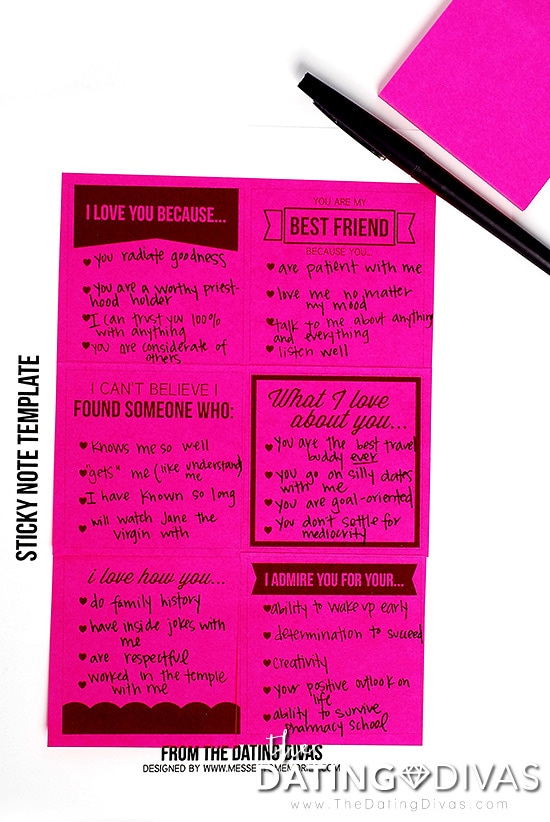 I LOVE YOU BECAUSE...
you radiate goodness
you are a worthy priest-
hood holder
I can trust you 100%
with anything
you are considerate of
others
YOU ARE MY
BEST FRIEND
BECAUSE YOU...
are patient with me
love me no matter
my mood
talk to me about anything
and everything
listen well
I CAN'T BELIEVE I
FOUND SOMEONE WHO:
knows me so well
"gets" me (like understand
me
I have known so long
will watch Jane the
virgin with
What I love
about you...
you are the best travel
buddy ever
you go on silly dates
with me
you are goal-oriented
you don't settle for
mediocrity
i love how you...
do family history
have inside jokes with
me
are respectful
worked in the temple
with me
I ADMIRE YOU FOR YOUR...
ability to wake up early
determination to succeed
creativity
your positive outlook on
life
ability to survive
pharmacy school
STICKY NOTE TEMPLATE
FROM THE DATING DIVAS
DESIGNED BY
the
DATING DIVAS
www.TheDatingDivas.com